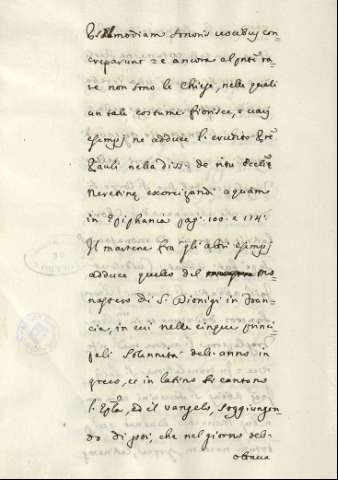 modiam sermonis vocibus con-
creparunt: e ancora al pnte ra-
re non sono le Chiese, nelle quali
un tale costume fiorisce, e varj
esempj ne adduce l'erudito
Pauli nella diss. de ritu Ecclę
Neretinę exorcizandi aquam
in Epiphania pag. 100. e 174.
Il martene fra gli altri esempj
adduce quello del mo-
nastero di S. Dionigi in Fran-
cia, in cui nelle cinque princi-
pali solennità dell'anno in
greco, et in latino si cantono
l'Epla, ed il vangelo, soggiungen-
do di poi, che nel giorno dell'
ottava